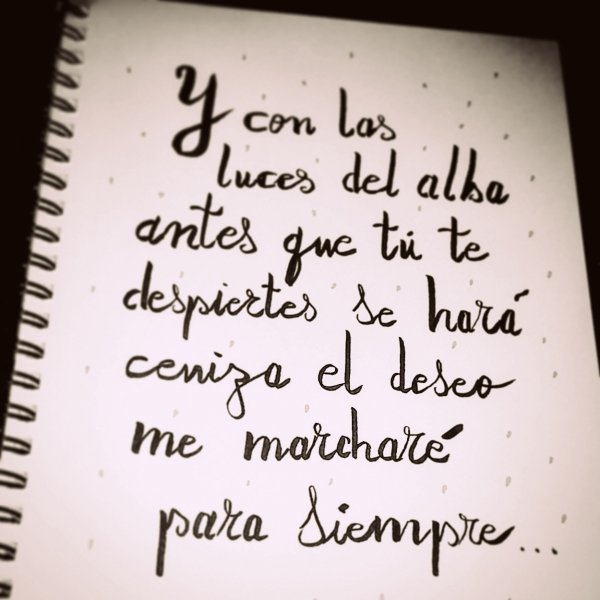 Y con las
luces del alba
antes que tú te
despiertes se hará
ceniza el deseo
me marcharé
para siempre...